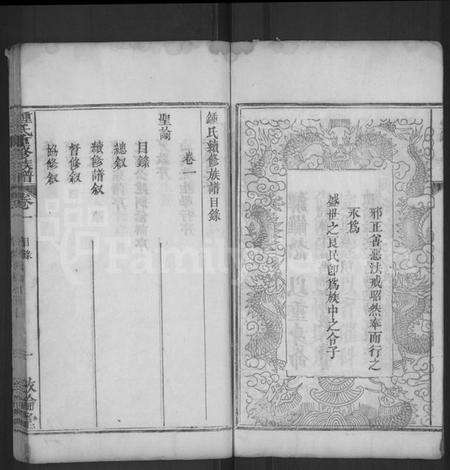 邪正善惡法戒昭然奉而行之
永爲
盛世之良民卽爲族中之令子
鍾氏續修族譜目錄
卷一
聖諭
目錄
總叙
續修譜叙
督修叙
協修叙
鍾氏續修族譜
卷一
目錄
一
敦倫堂
Family